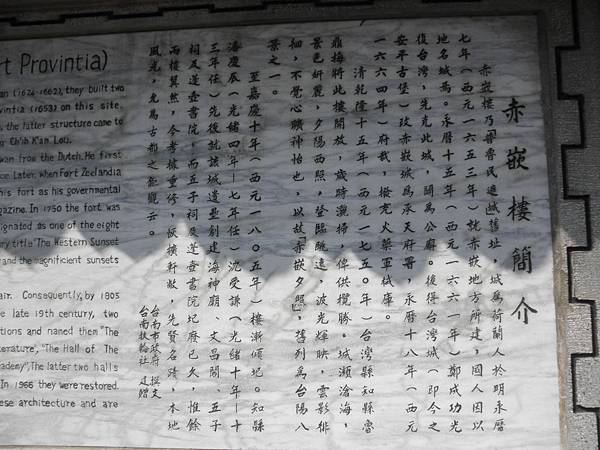 赤嵌樓簡介
赤嵌樓乃普魯民遮城舊址,城為荷蘭人於明永曆
七年(西元一六五三年)就赤嵌地方所建,國人因以
地名城焉。永曆十五年(西元一六六一年)鄭成功光
復台灣,先克此城,闢為公廨。復得台灣城(即今之
安平古堡)改赤嵌城為承天府署,永曆十八年(西元
一六六四年)府裁,撥充火藥軍械庫。
清乾隆十五年(西元一七五〇年)台灣縣知縣魯
鼎梅將此樓開放,歲時灑掃,俾供攬勝。城瀕滄海,
景色妍麗,夕陽西照,登臨眺遠,波光輝映,雲影徘
徊,不覺心曠神怡也,以故赤嵌夕照,舊列為台陽八
景之一。
至嘉慶十年(西元一八〇五年)樓漸傾圮。知縣
潘慶辰(光緒四年—七年任)沈受謙(光緒十年—十
三年任)先後就該城遺壘創建海神廟、文昌閣、五子
祠及蓬壺書院,而五子祠及蓬壺書院圮廢已久,惟餘
兩樓翼然,今考據重修,振横軒敞,先賢名蹟,本地
風光,允為古都之奇觀云。
台南市政府 撰文
台南扶輪社 建贈
rt Provintia)
an (1624-1662), they built two
vintia (1653) on this site.
, the latter structure came to
Ch'ih K'an Lou.
wan from the Dutch. He first
ce Later, when Fort Zeelandia
his fort as his governmental
gazine. In 1750 the fort was
signated as one of the eight
ry title "The Western Sunset
and the magnificient sunsets
air. Consequently, by 1805
e late 19th century, two
tions and named them "The
terature", "The Hall of The
cademy". The latter two halls
In 1966 they were restored.
ese architecture and are